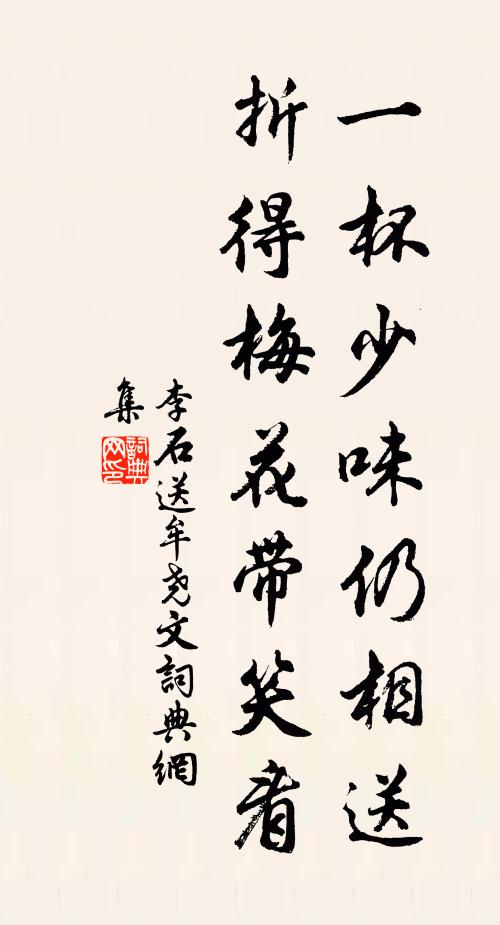 一杯少味仍相送
折得梅花带笑看
李石送牟尧文詞典網
集
詞典網印